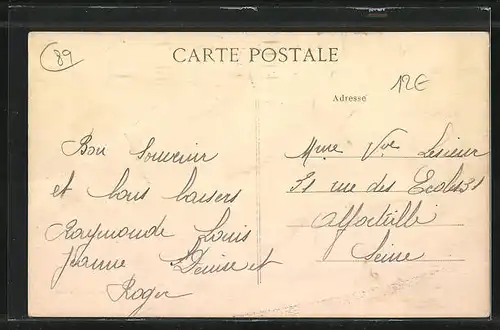 89
CARTE POSTALE
12€
Adresse
Bon Souvenir
et bons baisers
Raymonde Louis
Jeanne Denise et
Roger
Mme Vve Lesieur
31 rue des Ecoles 31
Alfortville
Seine